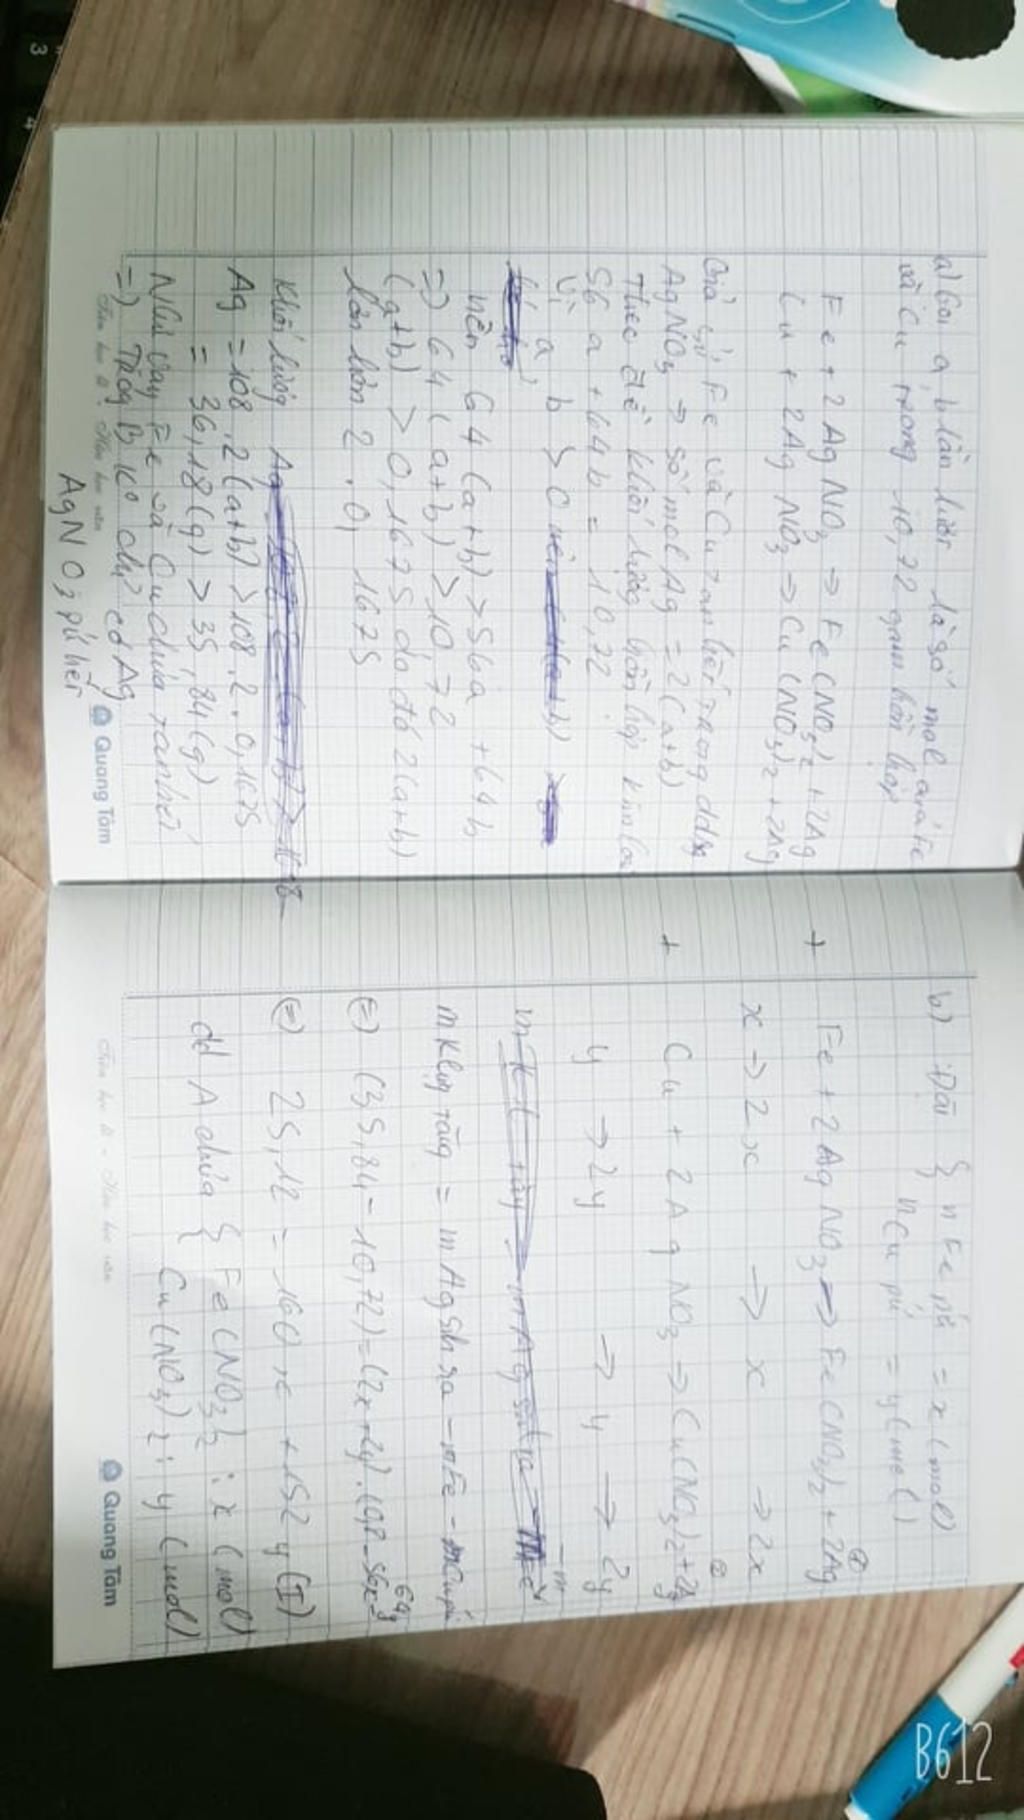 a) Gọi a, b lần lượt là số mol của Fe
và Cu trong 10,72 gam hỗn hợp
Fe + 2AgNO3 → Fe(NO3)2 + 2Ag
Cu + 2AgNO3 → Cu(NO3)2 + 2Ag
Fe và Cu tan hết trong dd
AgNO3 → Số mol Ag = 2(a+b)
Theo đề khối lượng hỗn hợp kim loại
56a + 64b = 10,72
Vì a, b > 0
nên 64(a+b) > 56a + 64b
=> 64(a+b) > 10,72
(a+b) > 0,1675 do đó 2(a+b)
lớn hơn 2.0,1675
Khối lượng Ag
Ag = 108.2(a+b) > 108.2.0,1675
= 36,18(g) > 35,84(g)
Như vậy Fe và Cu chưa tan hết
=> Trog B k° chỉ có Ag
AgNO3 pứ hết
Quang Tâm
b) Đặt { nFe pứ = x (mol)
nCu pứ = y (mol)
+ Fe + 2AgNO3 → Fe(NO3)2 + 2Ag ①
x → 2x → x → 2x
+ Cu + 2AgNO3 → Cu(NO3)2 + 2Ag ②
y → 2y → y → 2y
m klượng tăng = mAg sinh ra - mFe - mCu pứ
(=) (35,84 - 10,72) = (2x+2y).108 - 56x - 64y
(=) 25,12 = 160x + 152y (I)
dd A chứa { Fe(NO3)2 : x (mol)
Cu(NO3)2 : y (mol)
Quang Tâm
B612
3
4